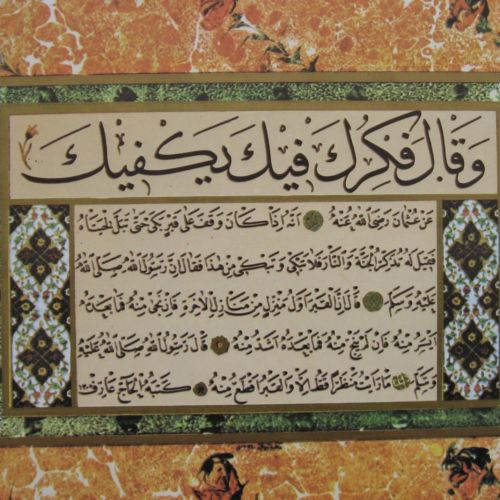 وقال فكرك فيك يكفيك
عن عثمان رضي الله عنه أنه إذا كان وقف على قبر بكى حتى تبل
فقيل له تذكر الجنة والنار فلا تبكي وتبكي من هذا فقال إن رسول الله صلى الله
عليه وسلم قال إن القبر أول منزل من منازل الآخرة فإن نجى منه فما بعده
أيسر منه فإن لم ينج منه فما بعده أشد منه قال رسول الله صلى الله عليه
وسلم ما رأيت منظرا قط إلا والقبر أفظع منه كتبه الحاج عارف